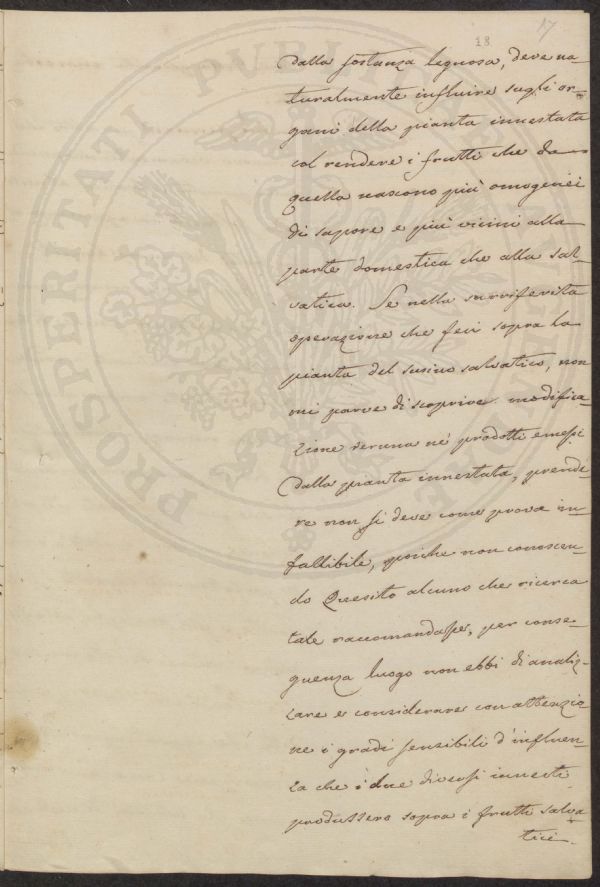 18
17
dalla sostanza legnosa, deve na-
turalmente influire sugli or-
gani della pianta innestata
col rendere i frutti che da
quella nascono più omogenei
di sapore e più vicini alla
parte domestica che alla sal-
vatica. Se nella surriferita
operazione che feci sopra la
pianta del susino salvatico, non
mi parve di scoprire modifica-
zione veruna né prodotti emessi
dalla pianta innestata, prende-
re non si deve come prova in-
fallibile, poiche non conoscen-
do Quesito alcuno che ricerca
tale raccomandasse, per conse-
guenza luogo non ebbi di analiz-
zare e considerare con attenzio-
ne i gradi sensibili d'influen-
za che i due diversi innesti
produssero sopra i frutti salva-
tici.
PROSPERITATI PUBLICAE AUGENDAE